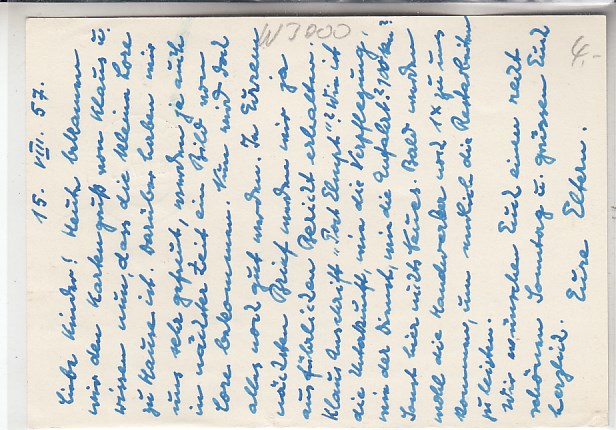 15. VIII. 57.
Liebe Kinder! Heute bekamen
wir den Kartengruß von Klaus u.
wissen nun, dass die kleine Lore
zu Hause ist. Darüber haben wir
uns sehr gefreut, werden ja auch
in nächster Zeit ein Bild von
Lore bekommen. Nun wird doch
alles noch gut werden. In Eurem
nächsten Brief werden wir ja
ausführlichen Bericht erhalten.
Klaus Anschrift "Post "? Wie ist
die Unterkunft, wie die Verpflegung,
wie der Dienst, wie die Anfahrt?
Sonst hier nichts Neues. Bald werden
wohl die Handwerker noch 1x zu uns
kommen, um endlich die Restarbeiten
zu leisten.
Wir wünschen Euch einen recht
schönen Sonntag u. grüssen Euch
herzlich. Eure Eltern.
W3000
4.-